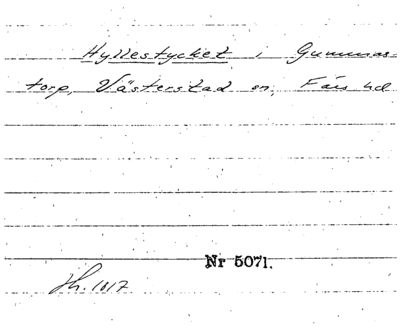 Hyllestycket i Gummas-
torp, Västerstad sn, Färs hd
Nr 5071.
Lh. 1017